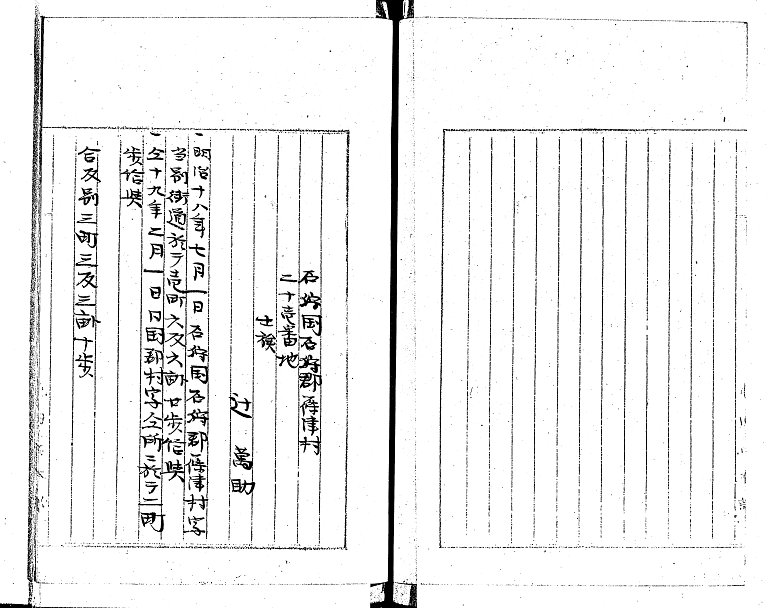 石狩国石狩郡篠津村
二十壱番地
士族
辻萬助
一明治十八年七月一日石狩国石狩郡篠津村字
当別街道於テ壱町六反六畝廿歩付与
一仝十九年二月一日同国郡村字仝所ニ於テ二町
歩付与
合反別三町三反三畝十歩